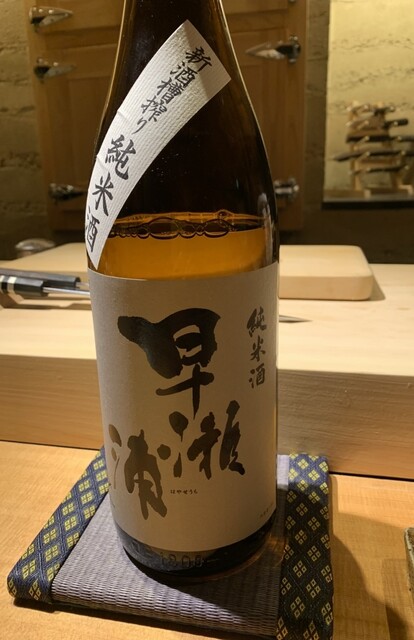 新酒槽搾り 純米酒
純米酒
早瀬浦
はやせうら